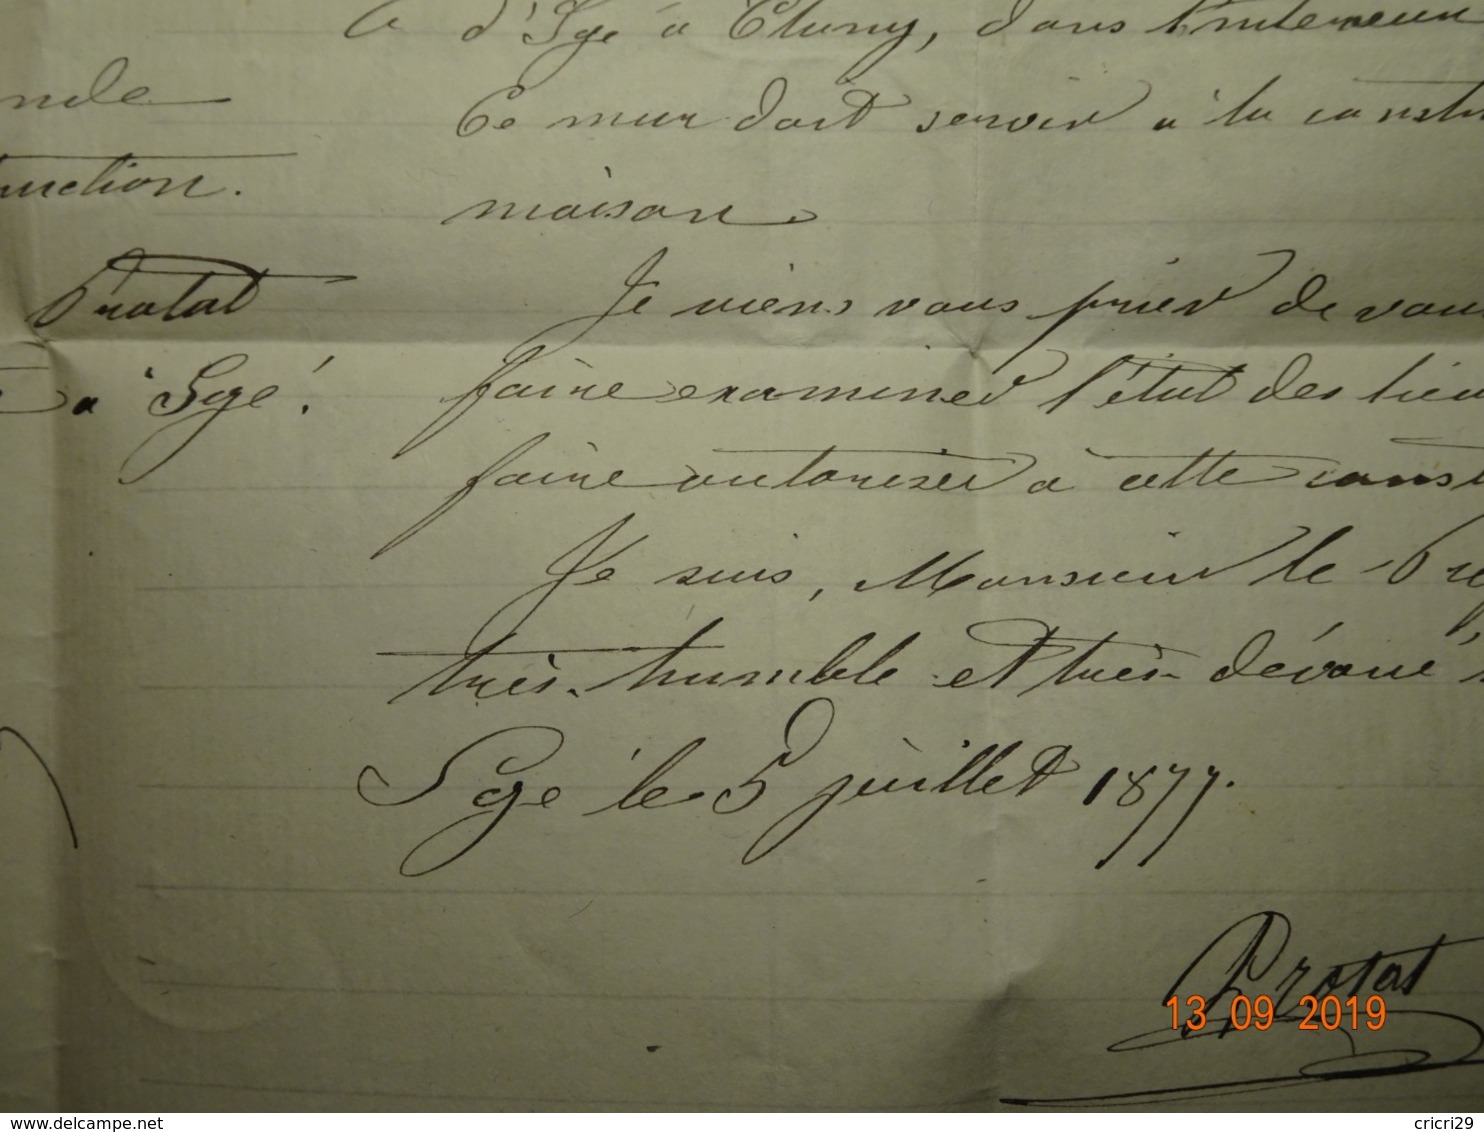 d'Igé à Cluny, dans l'intérieur
nde
Ce mur doit servir à la constr
uction.
maison.
Protat
Je viens vous prier de vou
à Igé.
faire examiner l'état des lieu
faire autoriser à cette const
Je suis, Monsieur le Préf
très-humble et très-dévoué s
Igé le 5 juillet 1877.
Protat
13 09 2019
delcampe.net
cricri29